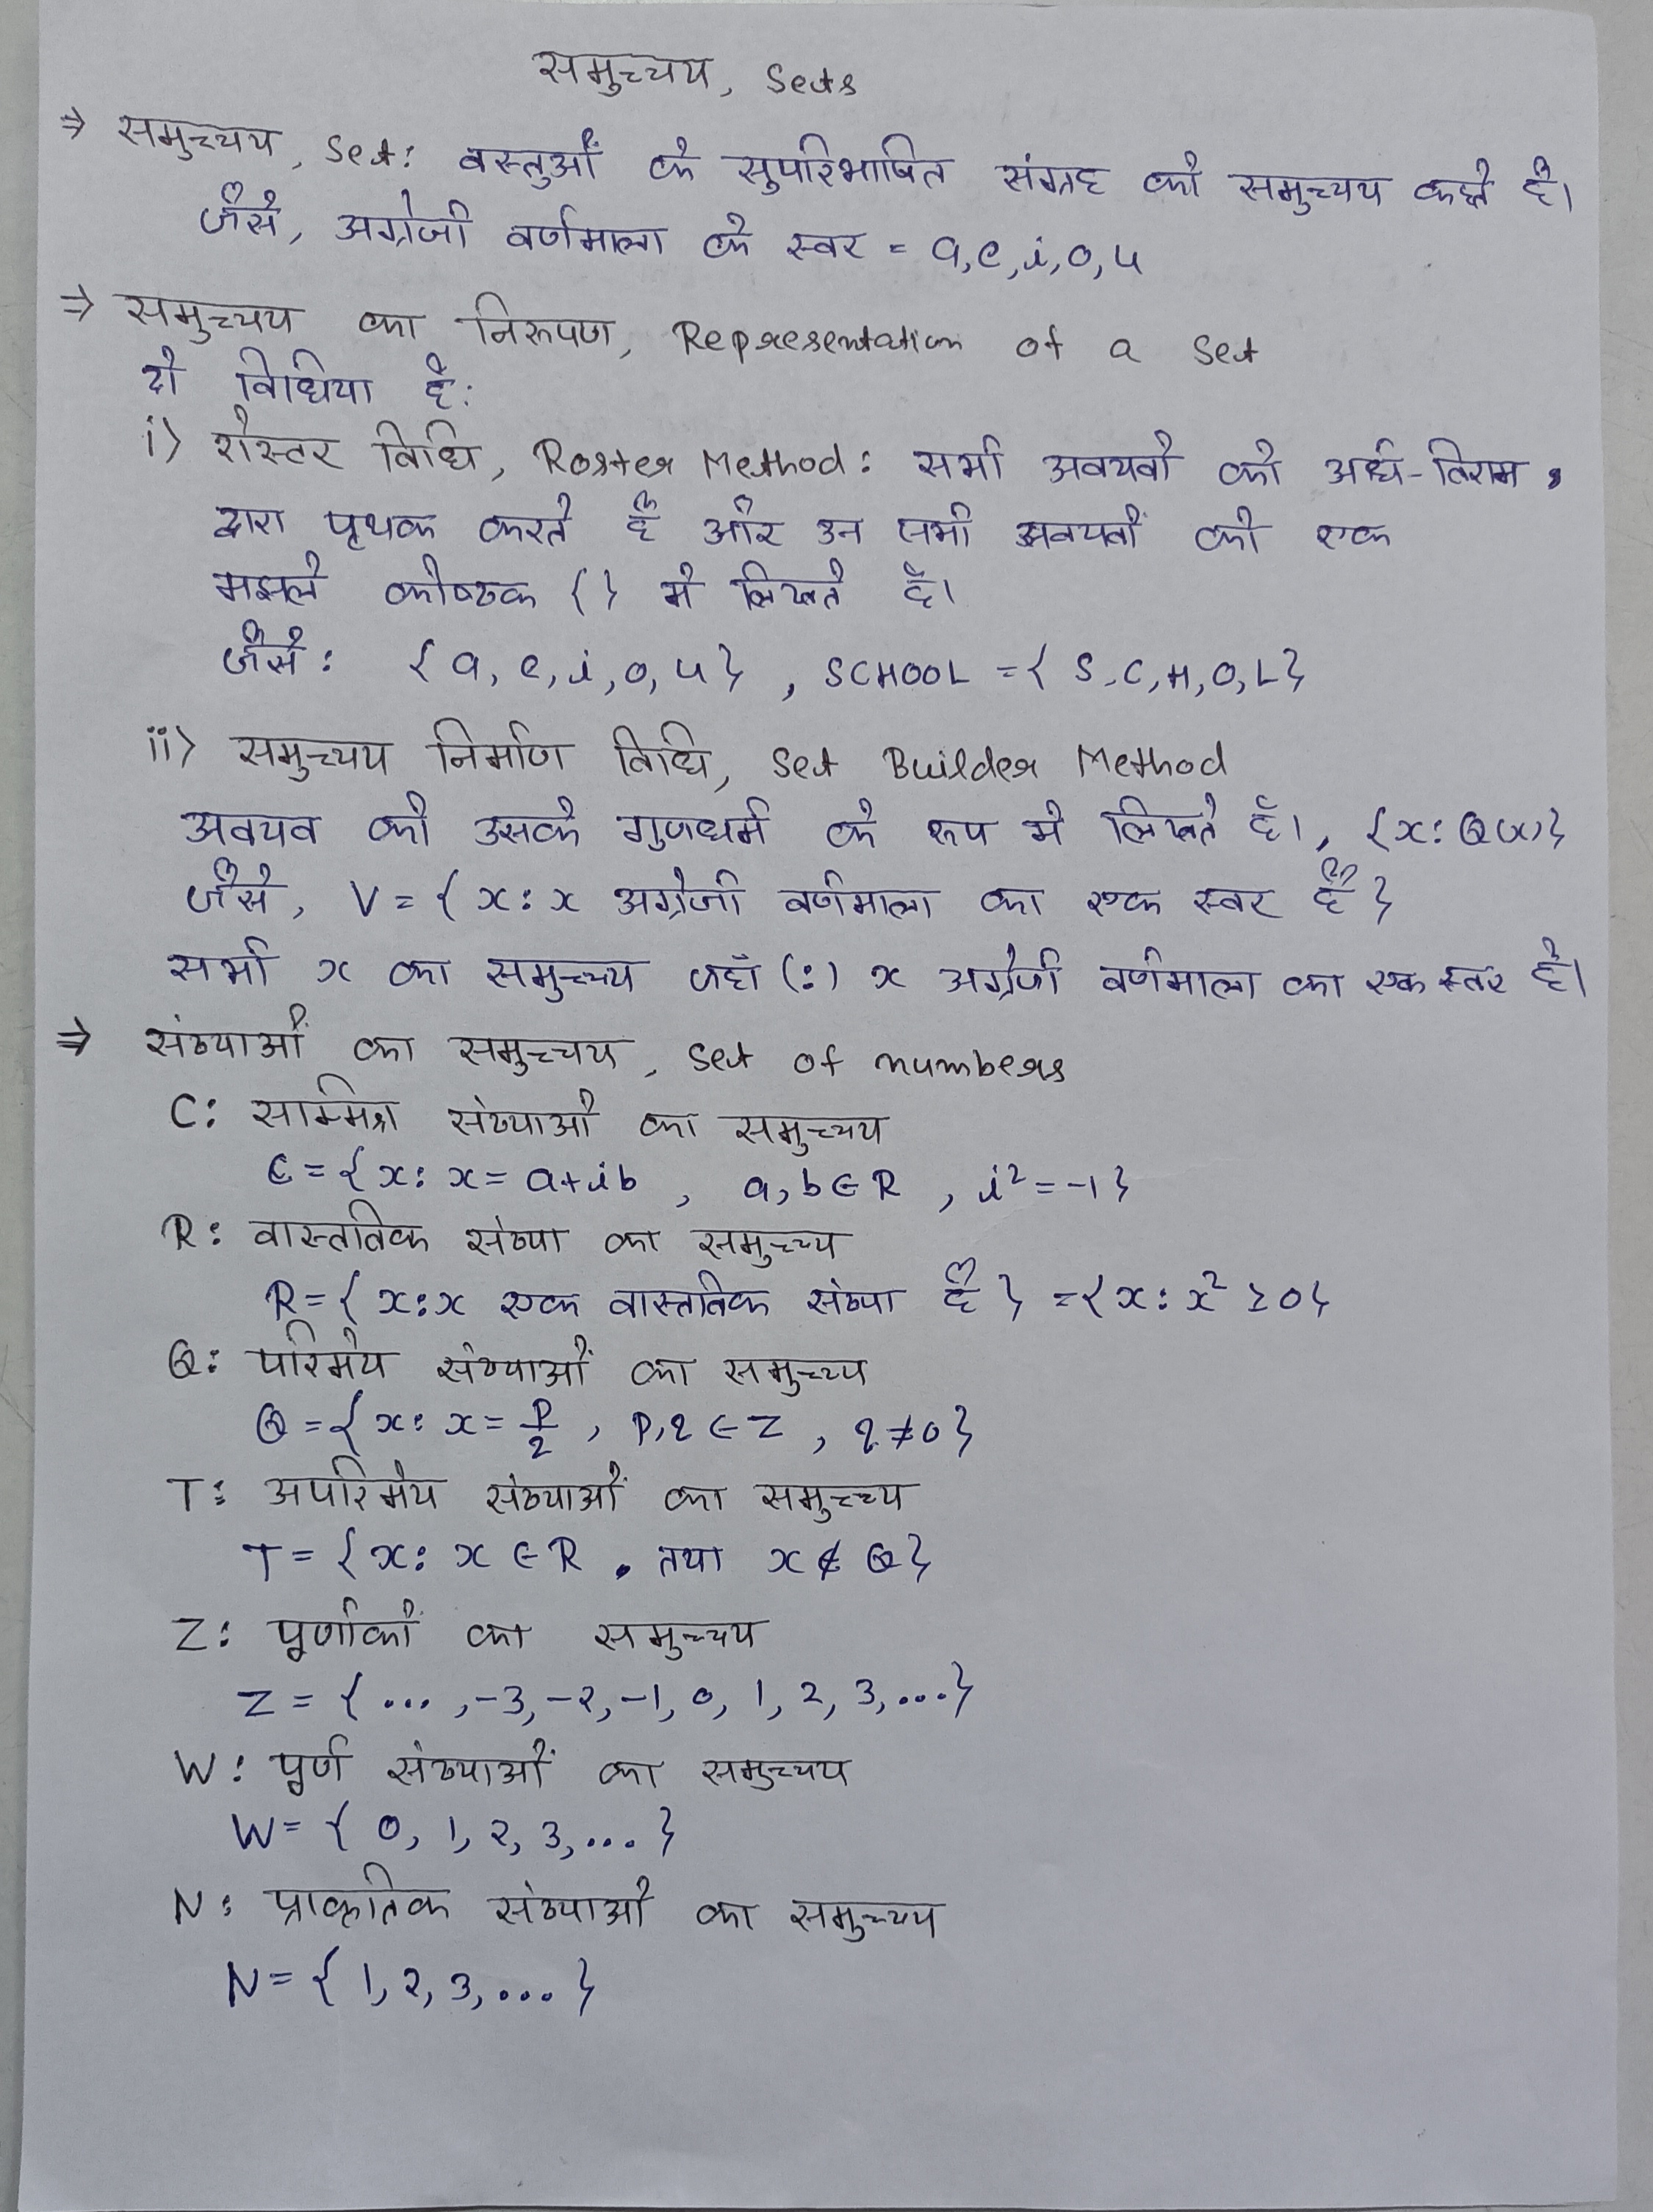 समुच्चय, Sets
⇒ समुच्चय, Set: वस्तुओं के सुपरिभाषित संग्रह को समुच्चय कहते है।
जैसे, अग्रेजी वर्णमाला के स्वर = a,e,i,o,u
⇒ समुच्चय का निरुपण, Representation of a Set
दो विधिया है:
i) रोस्टर विधि, Roster Method: सभी अवयवो को अर्ध-विराम ,
द्वारा पृथक करते हैं और उन सभी अवयवों को एक
मझले कोष्ठक {} मे लिखते है।
जैसे: {a, e, i, o, u} , SCHOOL = { S, C, H, O, L}
ii) समुच्चय निर्माण विधि, Set Builder Method
अवयव को उसके गुणधर्म के रूप मे लिखते है।, {x: Q(x)}
जैसे, V = { x: x अग्रेजी वर्णमाला का एक स्वर हैं }
सभी x का समुच्च्य जहाँ (:) x अग्रेजी वर्णमाला का एक स्वर है।
⇒ संख्याओं का समुच्चय, Set of numbers
C: सम्मिश्र संख्याओ का समुच्च्य
C = {x: x = a+ib , a,b ∈ R , i² = -1}
R: वास्तविक संख्या का समुच्च्य
R = { x: x एक वास्तविक संख्या हैं } = {x: x² ≥ 0}
Q: परिमेय संख्याओं का समुच्च्य
Q = {x: x = p/q , p,q ∈ Z , q ≠ 0}
T: अपरिमेय संख्याओं का समुच्च्य
T = {x: x ∈ R , तथा x ∉ Q}
Z: पूर्णाकों का समुच्चय
Z = { ... ,-3,-2,-1, 0, 1, 2, 3,...}
W: पूर्ण संख्याओं का समुच्चय
W = { 0, 1, 2, 3,... }
N: प्राकृतिक संख्याओ का समुच्च्य
N = { 1, 2, 3,... }